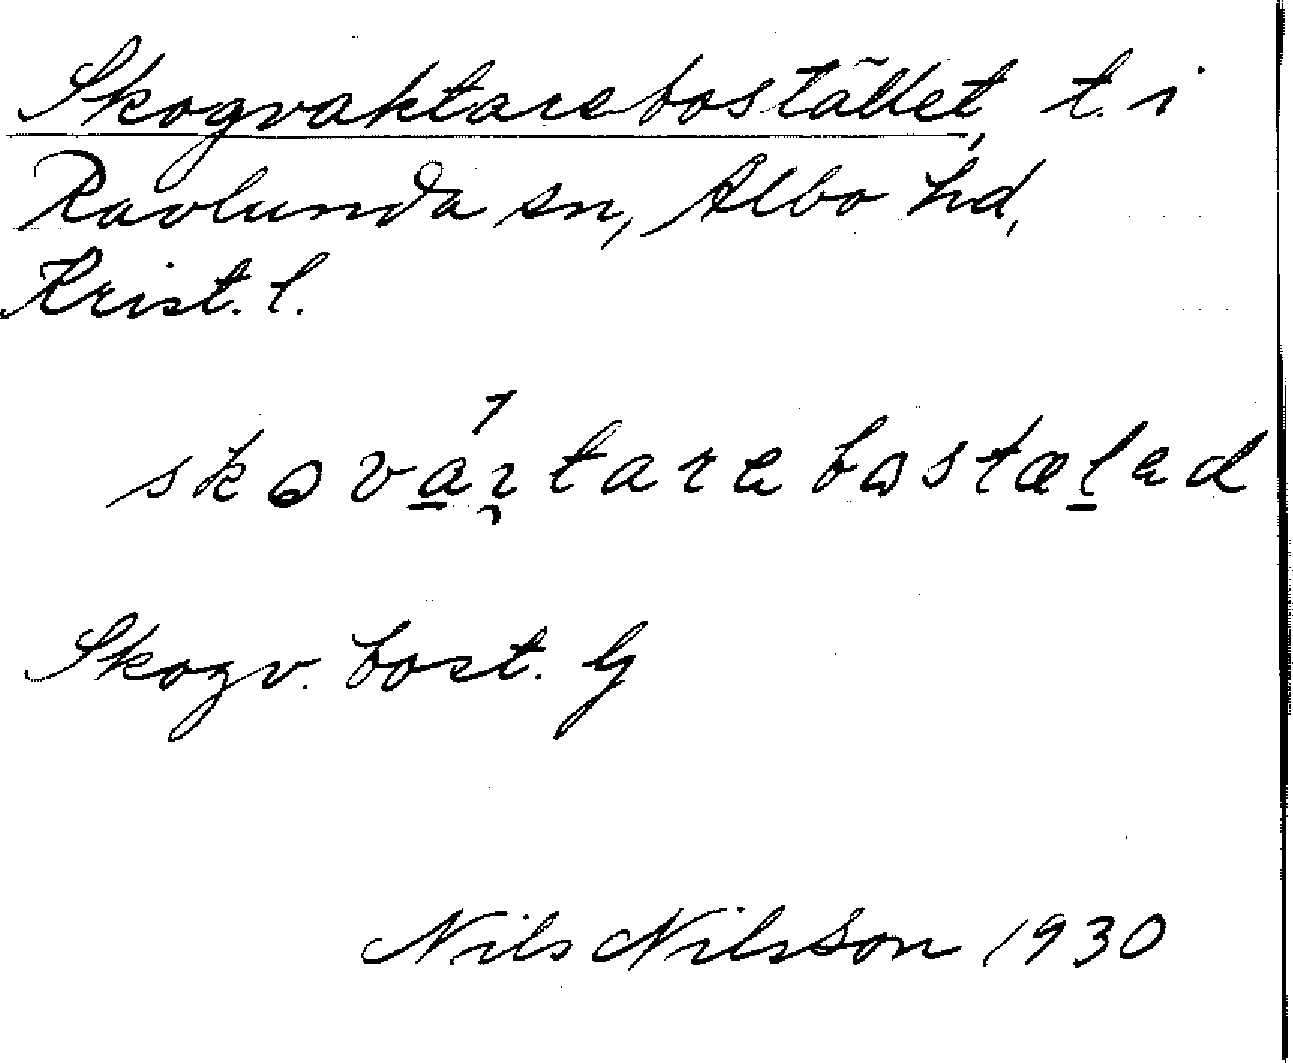 Skogvaktarebostället, t. i
Ravlunda sn, Albo hd,
Krist. l.
skovártarebostæled
Skogv. bost. G
Nils Nilsson 1930